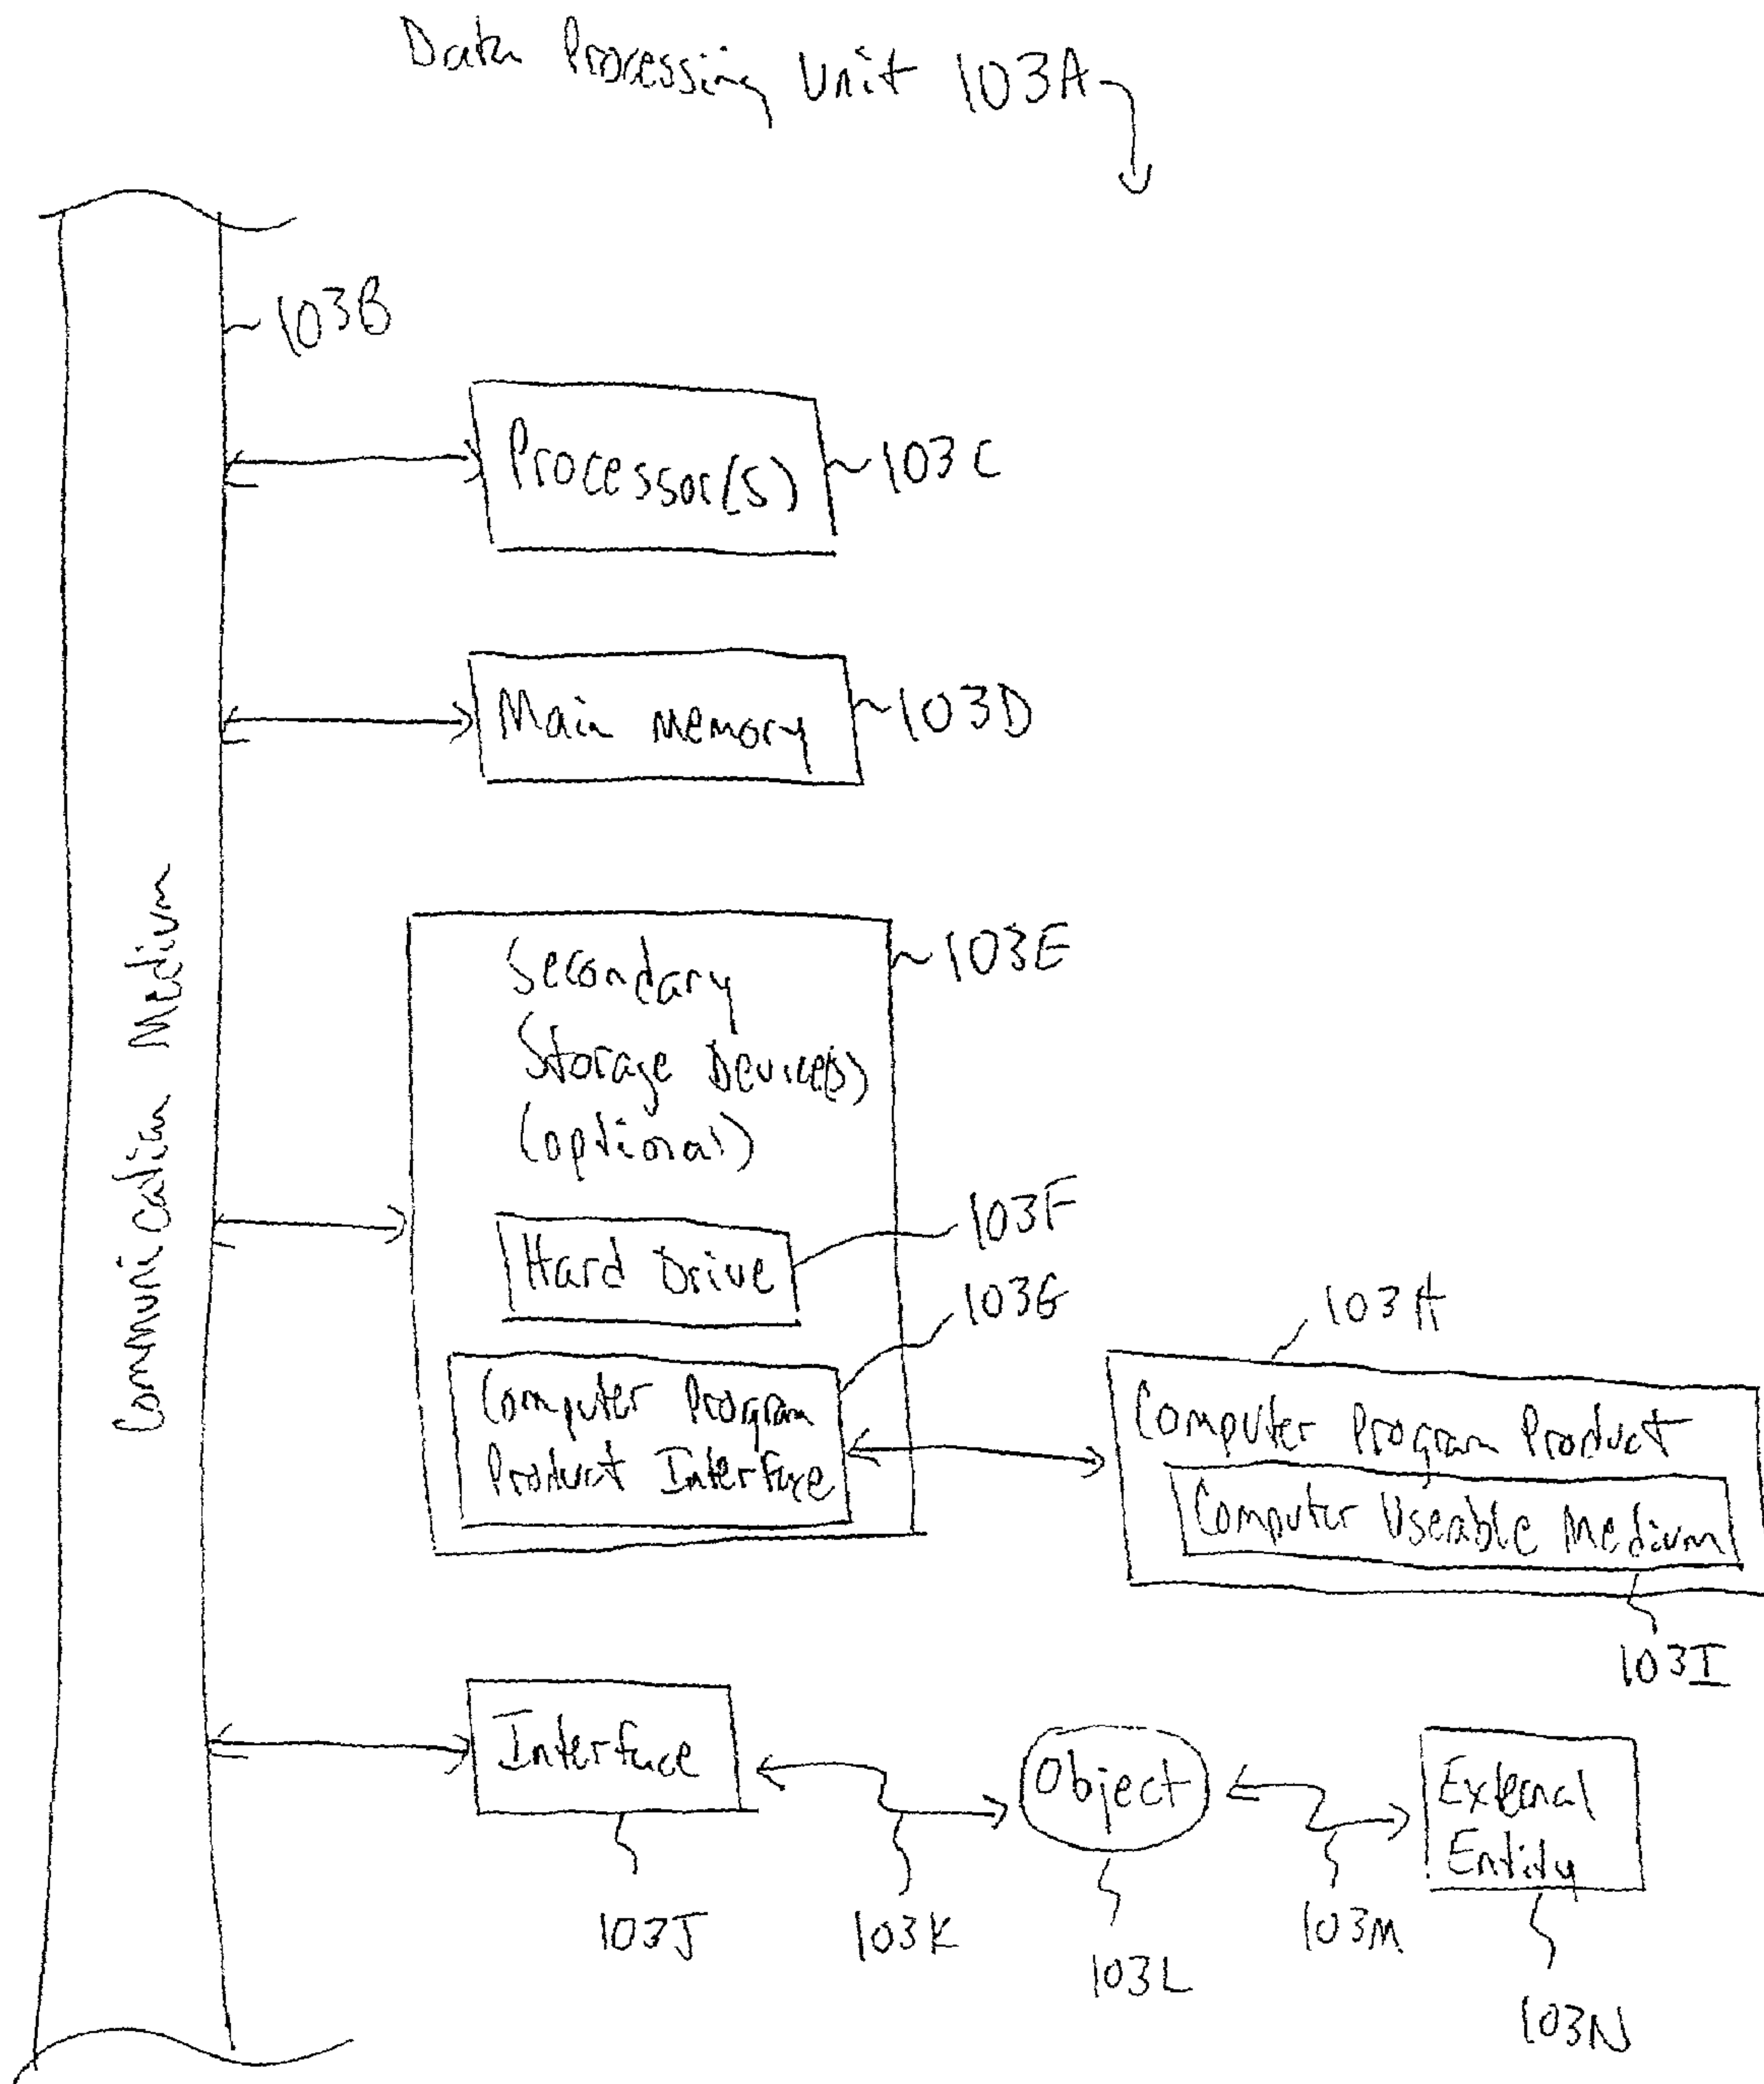 Data Processing Unit 103A
103B
Processor(s)
103C
Main Memory
103D
Communication Medium
Secondary
Storage Device(s)
(optional)
103E
Hard Drive
103F
Computer Program
Product Interface
103G
103H
Computer Program Product
Computer Useable Medium
103I
Interface
Object
External
Entity
103J
103K
103L
103M
103N